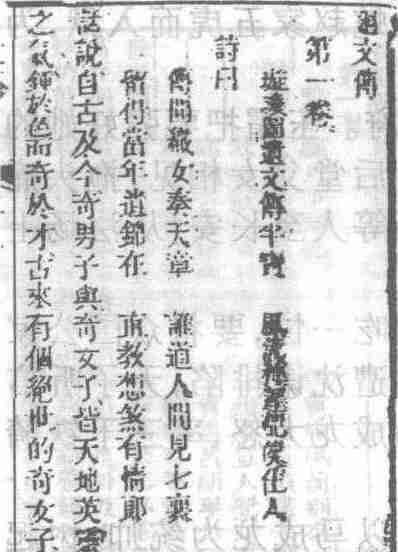 迴文傳
第一卷
璇璣圖遺文傳半寶 風流種繼覺雙佳人
詩曰
傳聞織女奏天章 誰道人間見七襄
留得當年遺錦在 直教想煞有情郎
話說自古及今奇男子與奇女子皆天地英靈
之氣鍾於色而奇於才古來有個絕世的奇女子